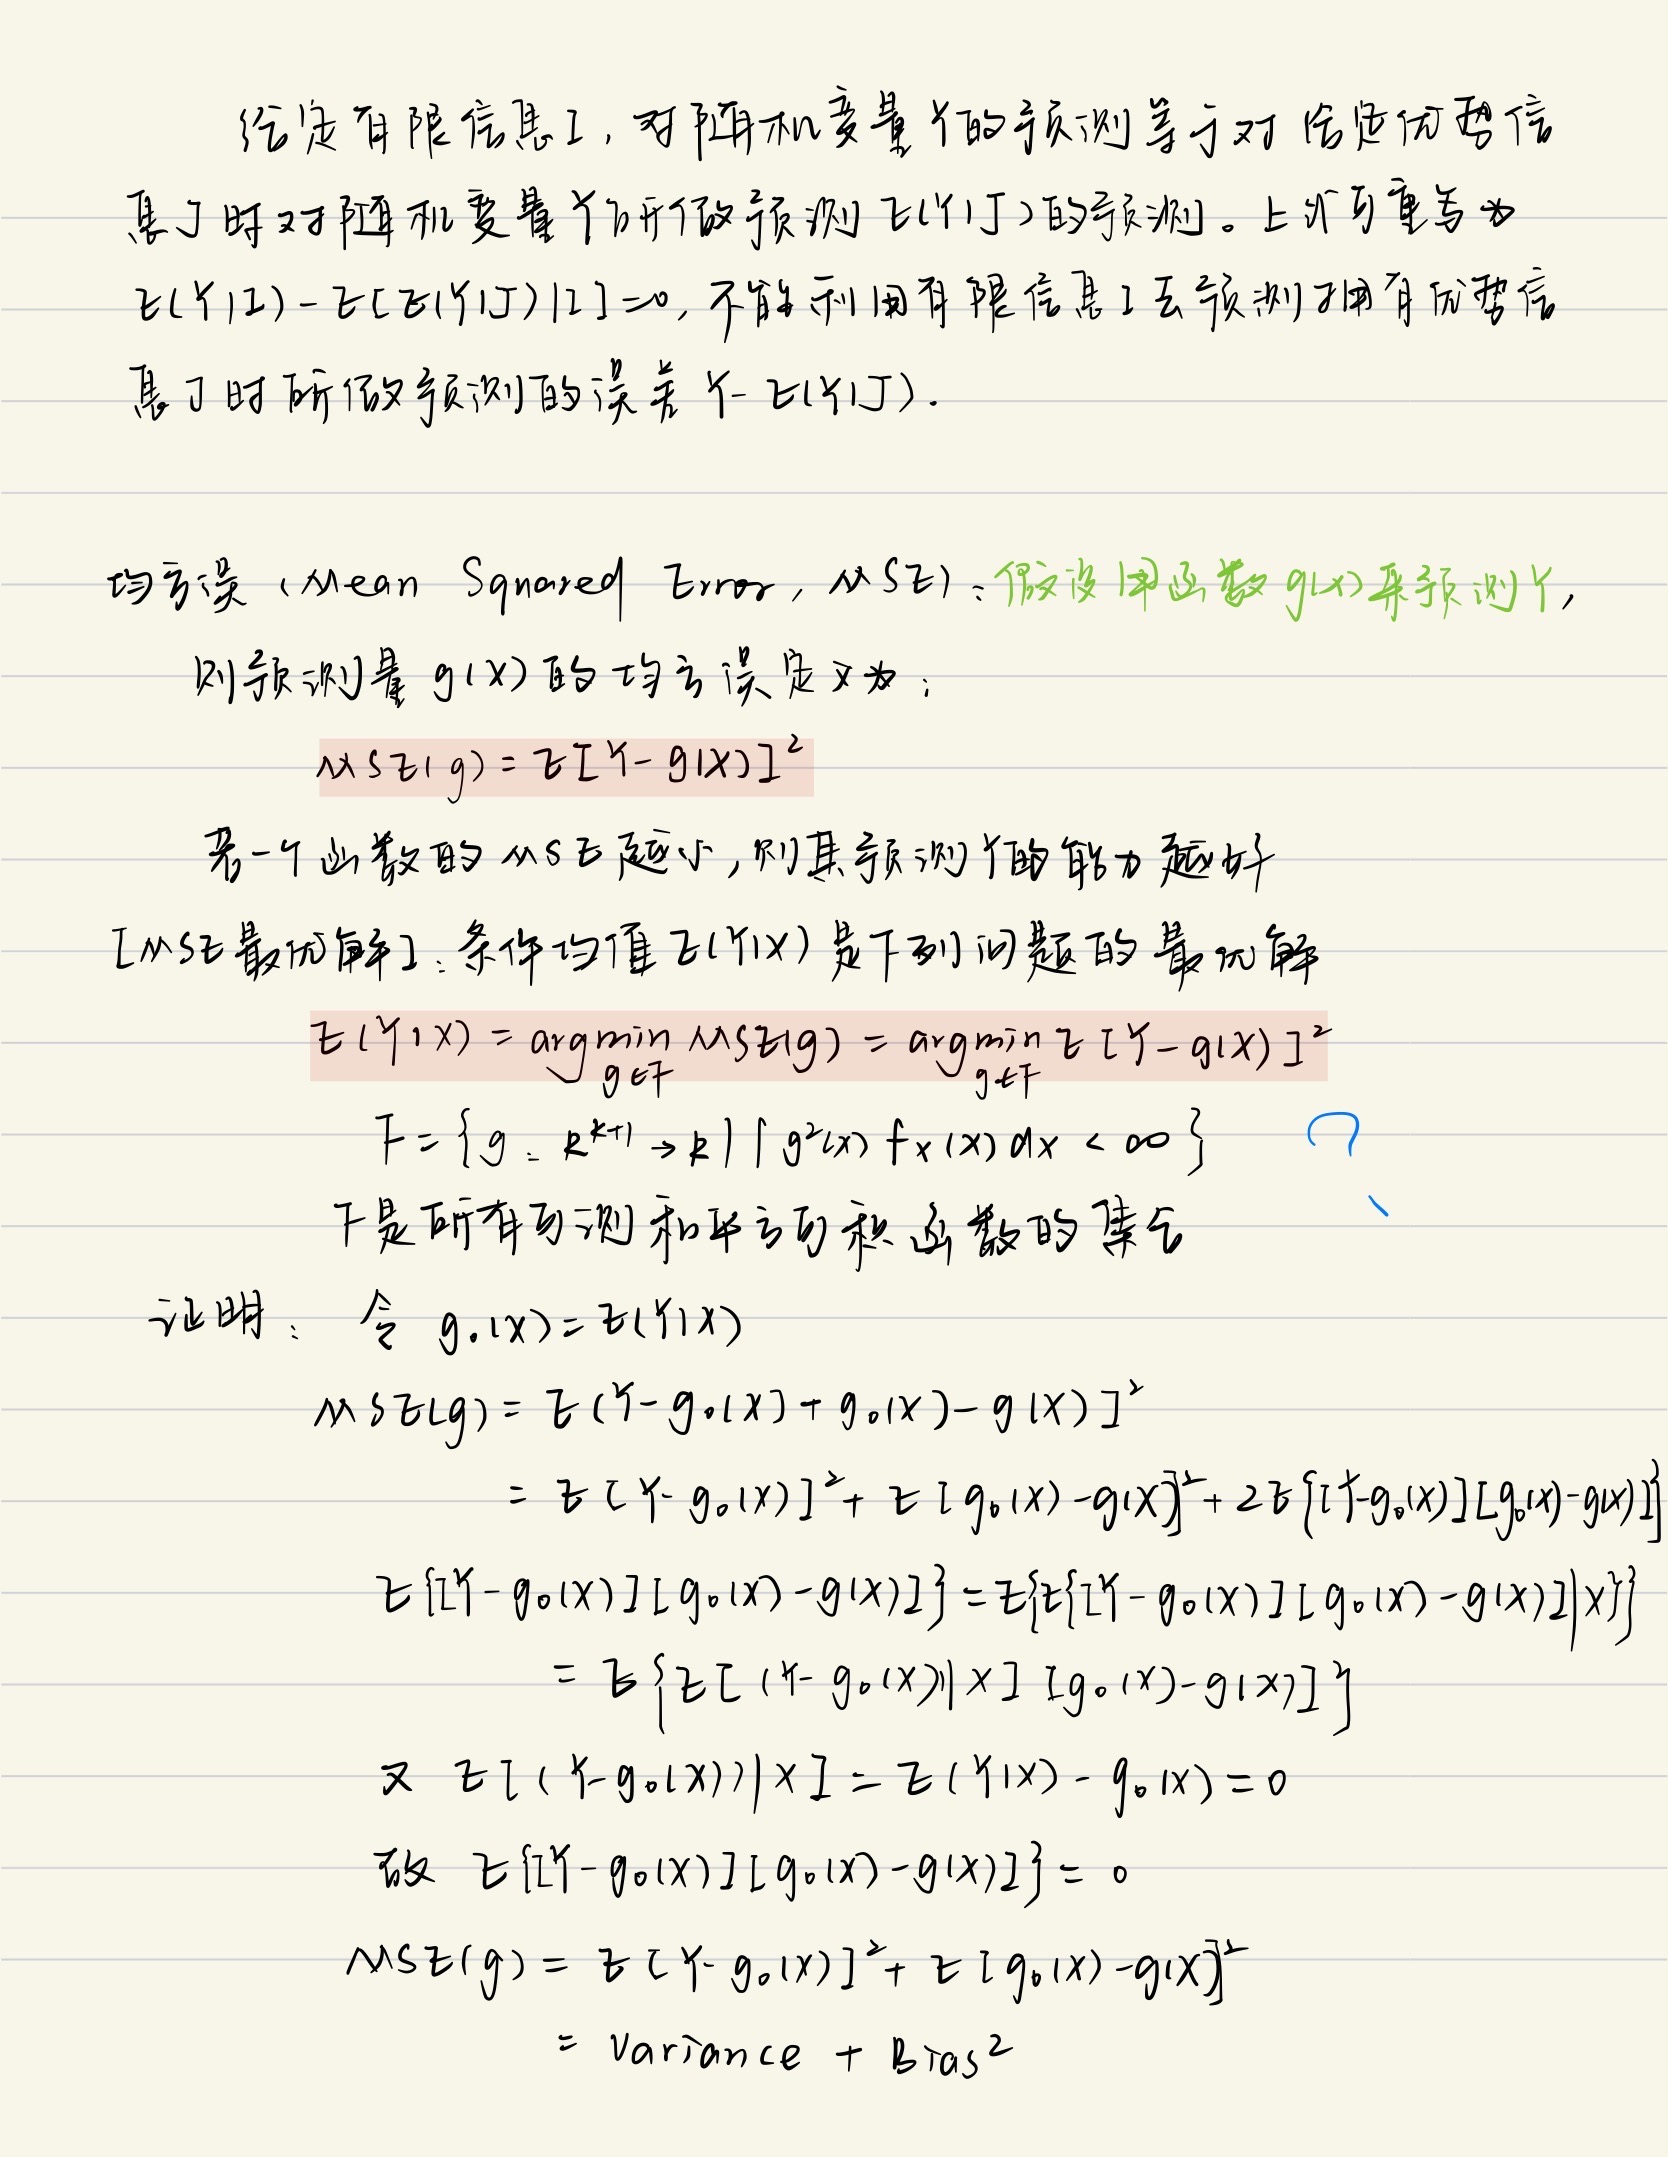 给定有限信息I，对随机变量Y的预测等于对给定优势信
息J时对随机变量Y所做预测E(Y|J)的预测。上式可重写为
E(Y|I)-E[E(Y|J)|I]=0，不能利用有限信息I去预测拥有优势信
息J时所做预测的误差Y-E(Y|J).
均方误 (Mean Squared Error, MSE)：假设用函数g(x)来预测Y,
则预测量g(X)的均方误定义为：
MSE(g) = E[Y-g(X)]²
若一个函数的MSE越小，则其预测Y的能力越好
[MSE最优解]：条件均值E(Y|X)是下列问题的最优解
E(Y|X) = argmin MSE(g) = argmin E[Y-g(X)]²
g∈F g∈F
F = {g: R^{k+1}→R | ∫g²(x) f_X(x) dx < ∞} ?
F是所有可测和平方可积函数的集合
证明： 令 g₀(X)=E(Y|X)
MSE(g) = E(Y-g₀(X)+g₀(X)-g(X)]²
= E[Y-g₀(X)]²+E[g₀(X)-g(X)]²+2E{[Y-g₀(X)][g₀(X)-g(X)]}
E{[Y-g₀(X)][g₀(X)-g(X)]}=E{E{[Y-g₀(X)][g₀(X)-g(X)]|X}}
= E{E[(Y-g₀(X))|X][g₀(X)-g(X)]}
又 E[(Y-g₀(X))|X]=E(Y|X)-g₀(X)=0
故 E{[Y-g₀(X)][g₀(X)-g(X)]}=0
MSE(g) = E[Y-g₀(X)]²+E[g₀(X)-g(X)]²
= Variance + Bias²